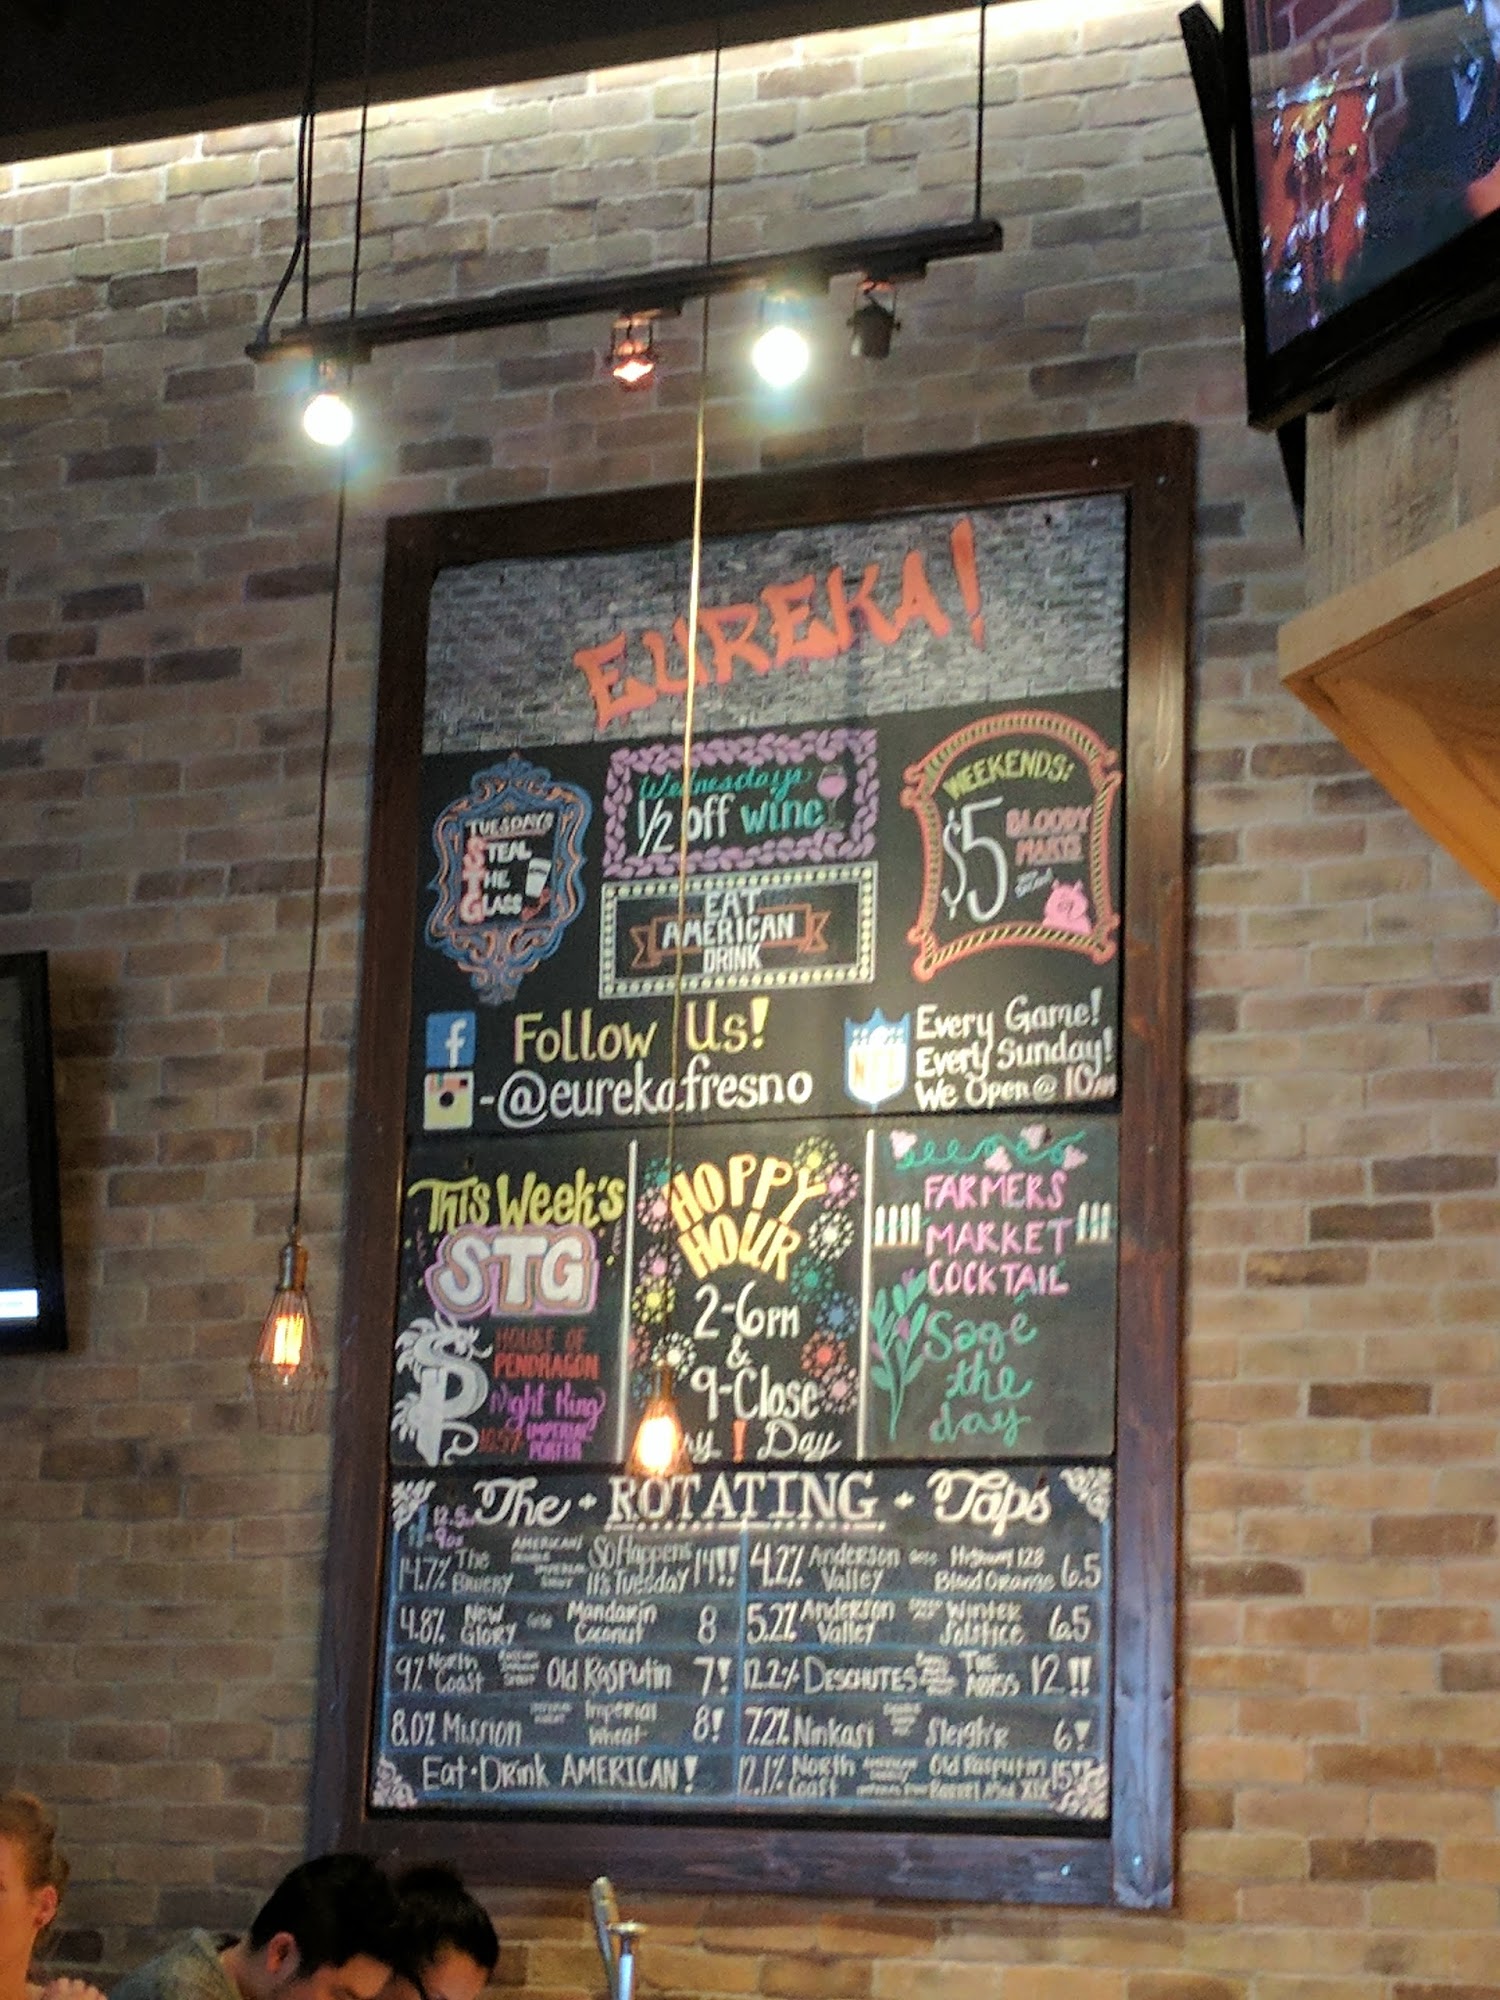 EUREKA!
TUESDAYS
STEAL
THE
GLASS
Wednesdays
1/2 off wine
EAT
AMERICAN
DRINK
WEEKENDS:
$5 BLOODY
MARYS
f Follow Us!
-@eurekafresno
NFL
Every Game!
Every Sunday!
We Open @ 10AM
This Week's
STG
HOUSE OF
PENDRAGON
Night King
IMPERIAL
PORTER
HOPPY
HOUR
2-6PM
&
9-Close
Day
FARMERS
MARKET
COCKTAIL
Sage
the
day
The - ROTATING - Taps
14.7% The Bruery So Happens It's Tuesday 14!!
4.8% New Glory Mandarin Coconut 8
9% North Coast Old Rasputin 7!
8.0% Mission Imperial Wheat 8!
Eat · Drink AMERICAN!
4.2% Anderson Valley Gose Highway 128 Blood Orange 6.5
5.2% Anderson Valley Winter Solstice 6.5
12.2% DESCHUTES THE ABYSS 12!!
7.2% Ninkasi Sleigh'r 6!
12.1% North Coast Old Rasputin Barrel Aged XIX 15!!